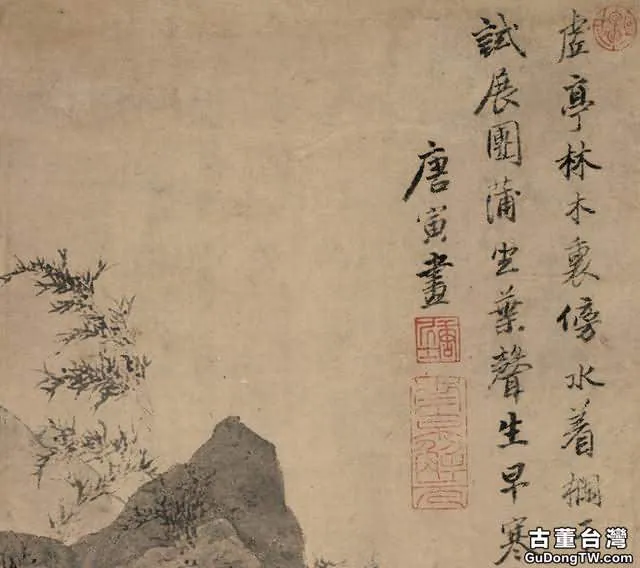 虛亭林木裏傍水着欄
試展團蒲坐葉聲生早寒
唐寅畫
南京解元
古董台灣
GuDongTW.com